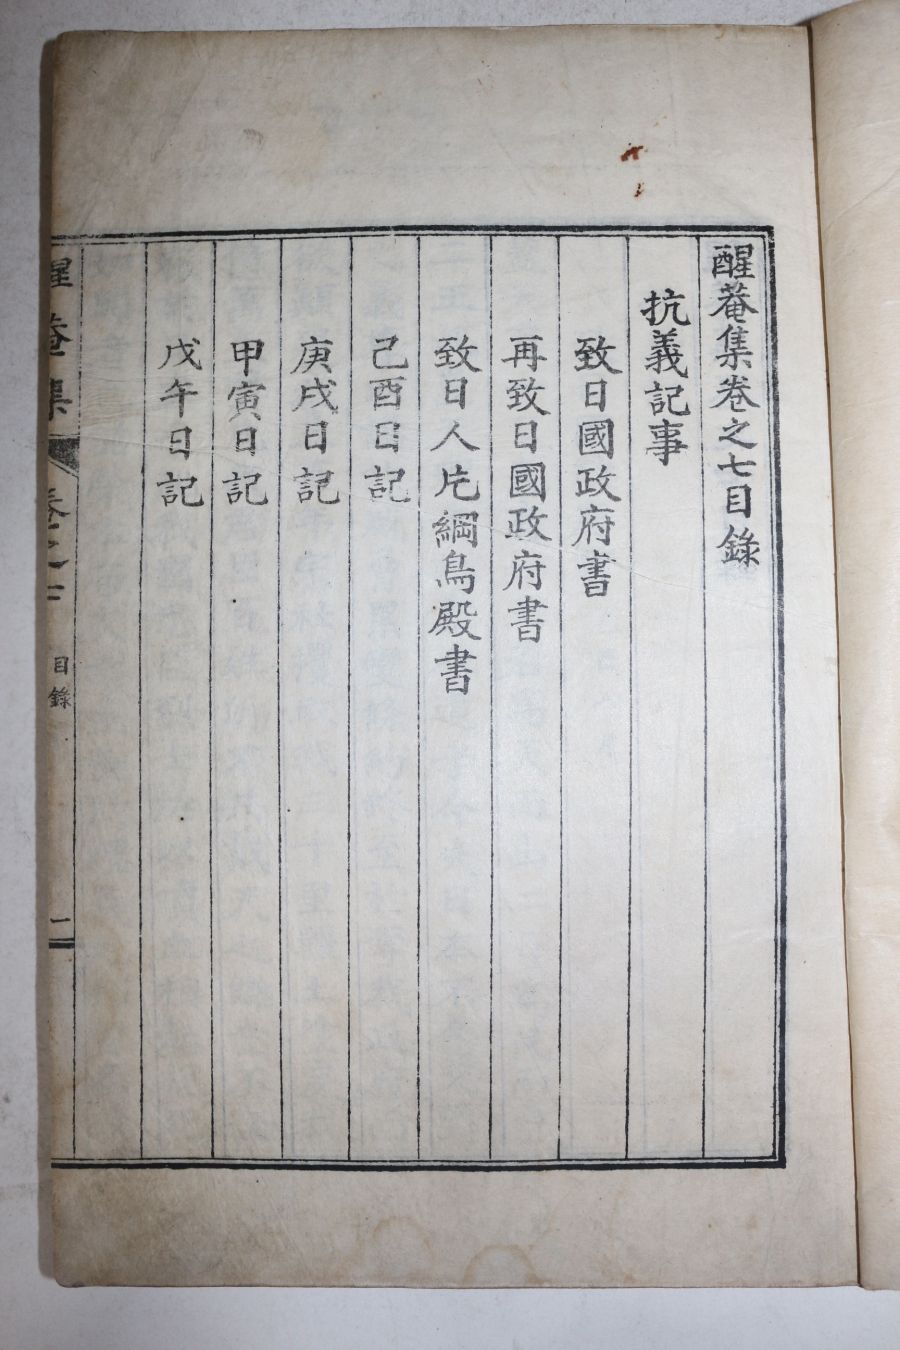 醒菴集卷之七目錄
抗義記事
致日國政府書
再致日國政府書
致日人片綱鳥殿書
己酉日記
庚戌日記
甲寅日記
戊午日記
醒菴集 卷之七 目錄 一